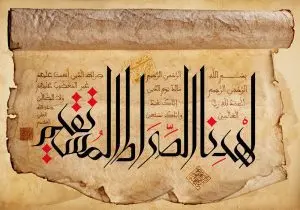 بسم الله
الرحمن الرحيم
الحمد لله رب
العالمين
الرحمن الرحيم
مالك يوم الدين
إياك نعبد
وإياك نستعين
اهدنا الصراط المستقيم
صراط الذين أنعمت عليهم
غير المغضوب عليهم
ولا الضالين